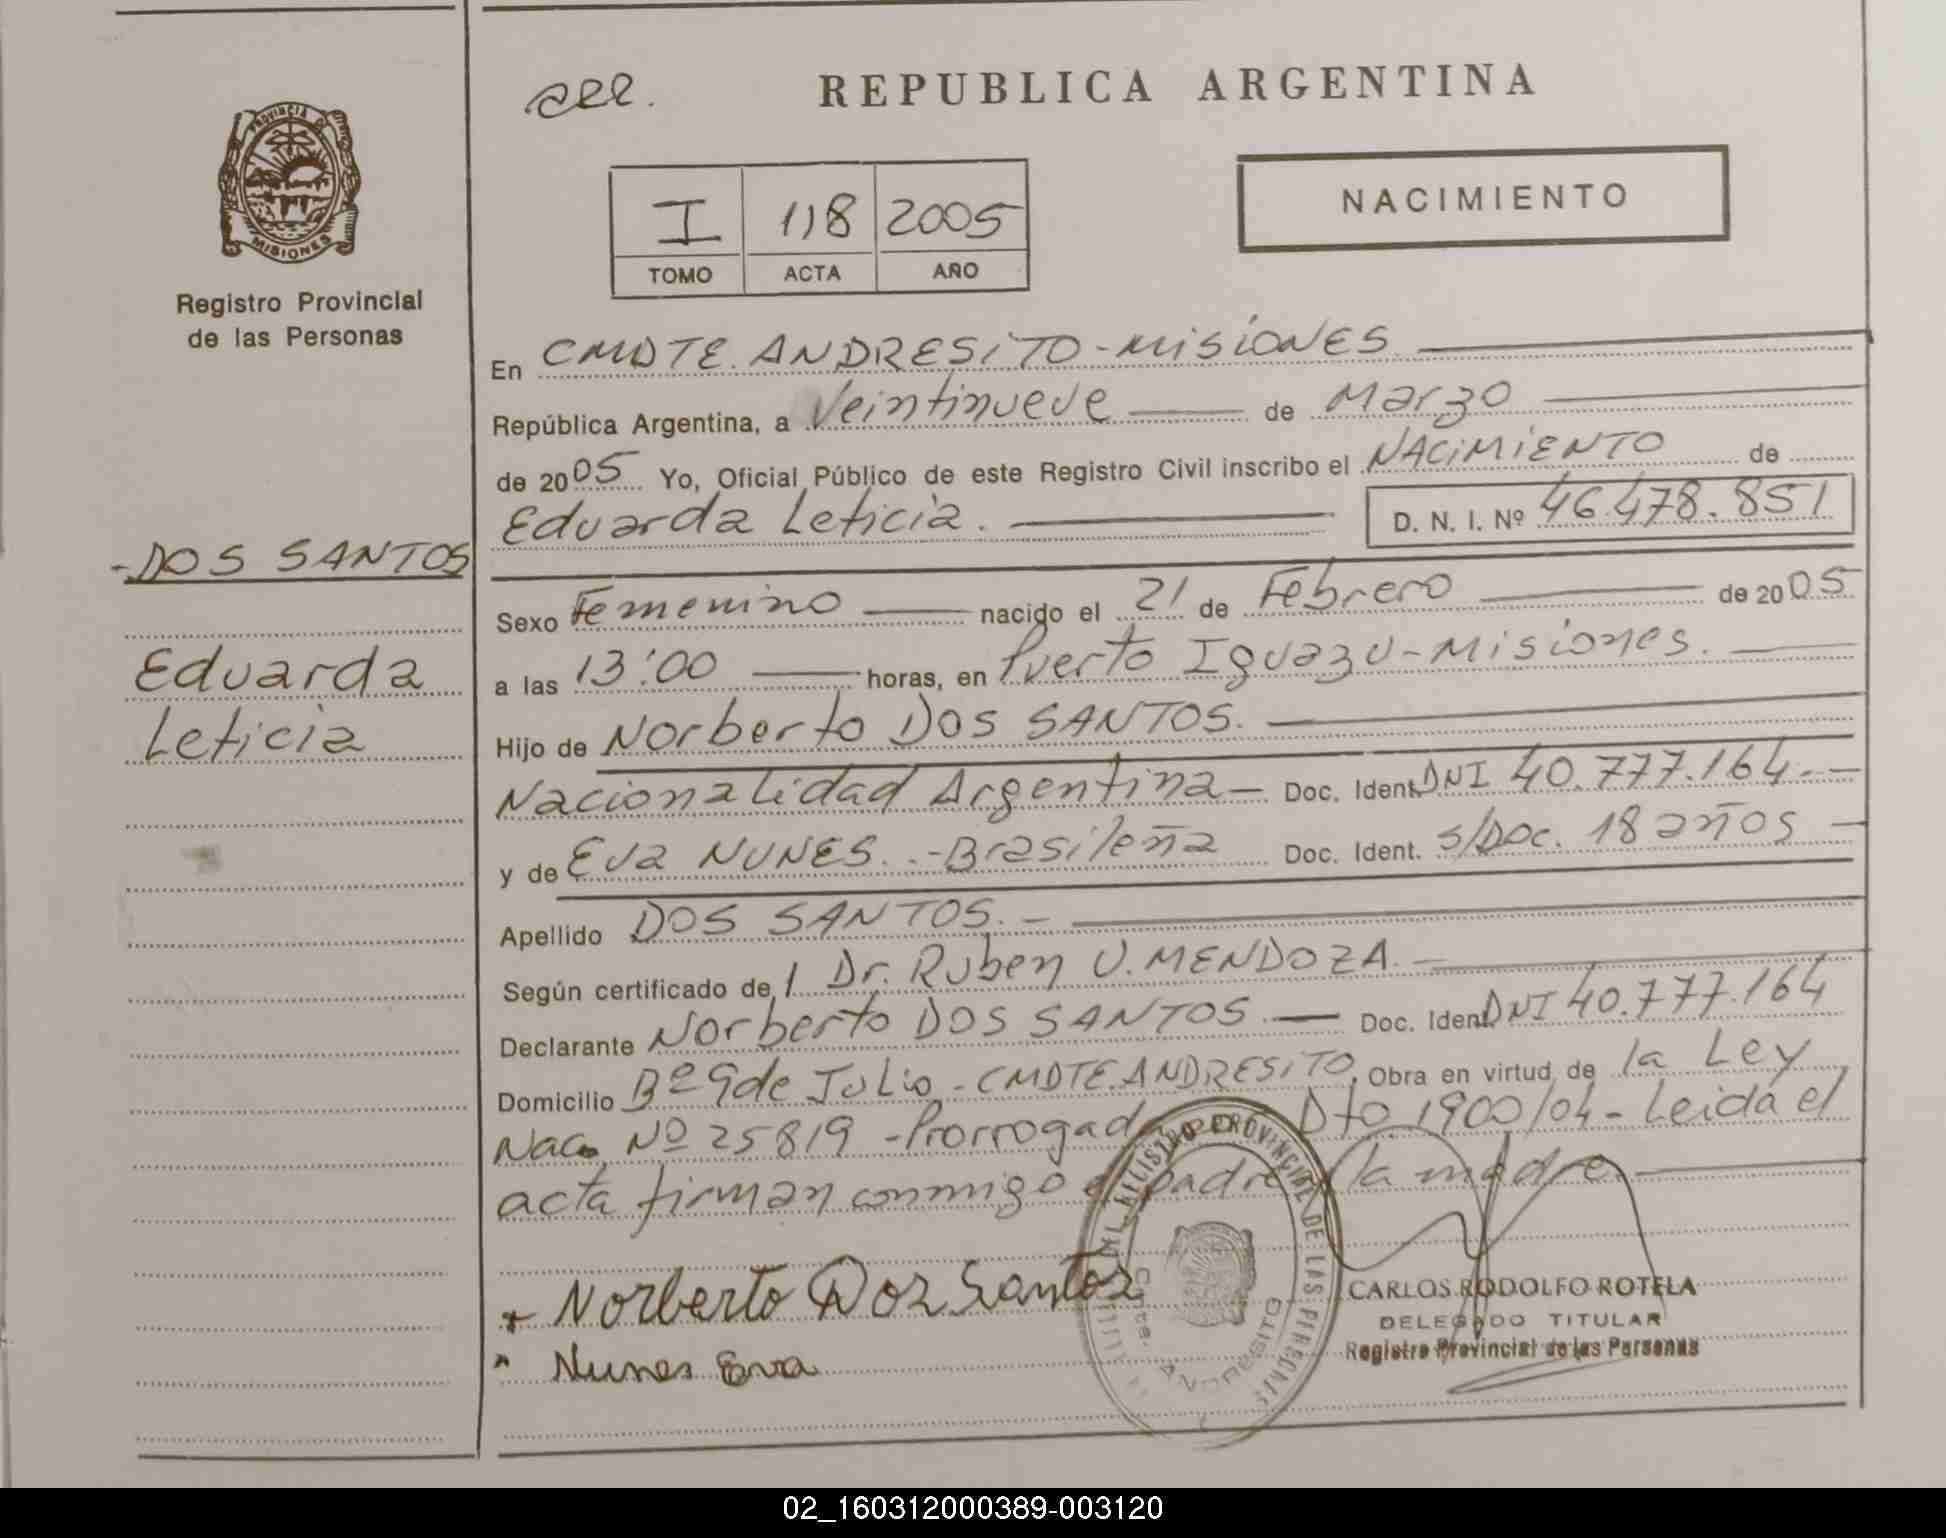 PROVINCIA DE
MISIONES
Registro Provincial
de las Personas
- DOS SANTOS
Eduarda
Leticia
REPUBLICA ARGENTINA
I 118 2005
TOMO ACTA AÑO
NACIMIENTO
En CMDTE. ANDRESITO - MISIONES
República Argentina, a Veintinueve de Marzo
de 2005 Yo, Oficial Público de este Registro Civil inscribo el NACIMIENTO de
Eduarda Leticia. D. N. I. Nº 46.478.851
Sexo Femenino nacido el 21 de Febrero de 2005
a las 13:00 horas, en Puerto Iguazu - Misiones.
Hijo de Norberto DOS SANTOS.
Nacionalidad Argentina - Doc. Ident. DNI 40.777.164.-
y de Eva NUNES. - Brasileña Doc. Ident. s/Doc. 18 años
Apellido DOS SANTOS. -
Según certificado de 1 Dr. Ruben U. MENDOZA. -
Declarante Norberto DOS SANTOS - Doc. Ident. DNI 40.777.164
Domicilio Bº 9 de Julio - CMDTE. ANDRESITO. Obra en virtud de la Ley
Nac. Nº 25819 - Prorrogada Dto. 1900/04 - Leida el
acta firman conmigo el padre la madre.
Norberto Dos Santos
Nunes Eva
REGISTRO PROVINCIAL DE LAS PERSONAS
Cmte. ANDRESITO
CARLOS RODOLFO ROTELA
DELEGADO TITULAR
Registro Provincial de las Personas
02_160312000389-003120